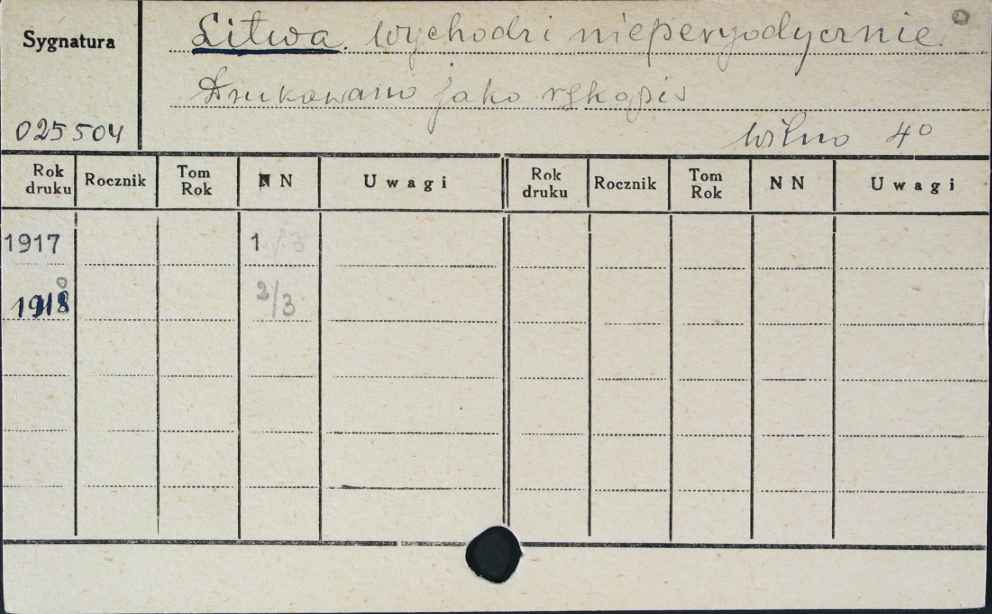 Sygnatura
Litwa. Wychodzi nieperyodycznie.
Drukowano jako rękopis
025504
Wilno 4°
Rok druku Rocznik Tom Rok N N Uwagi Rok druku Rocznik Tom Rok N N Uwagi
1917 1
1918 2/3